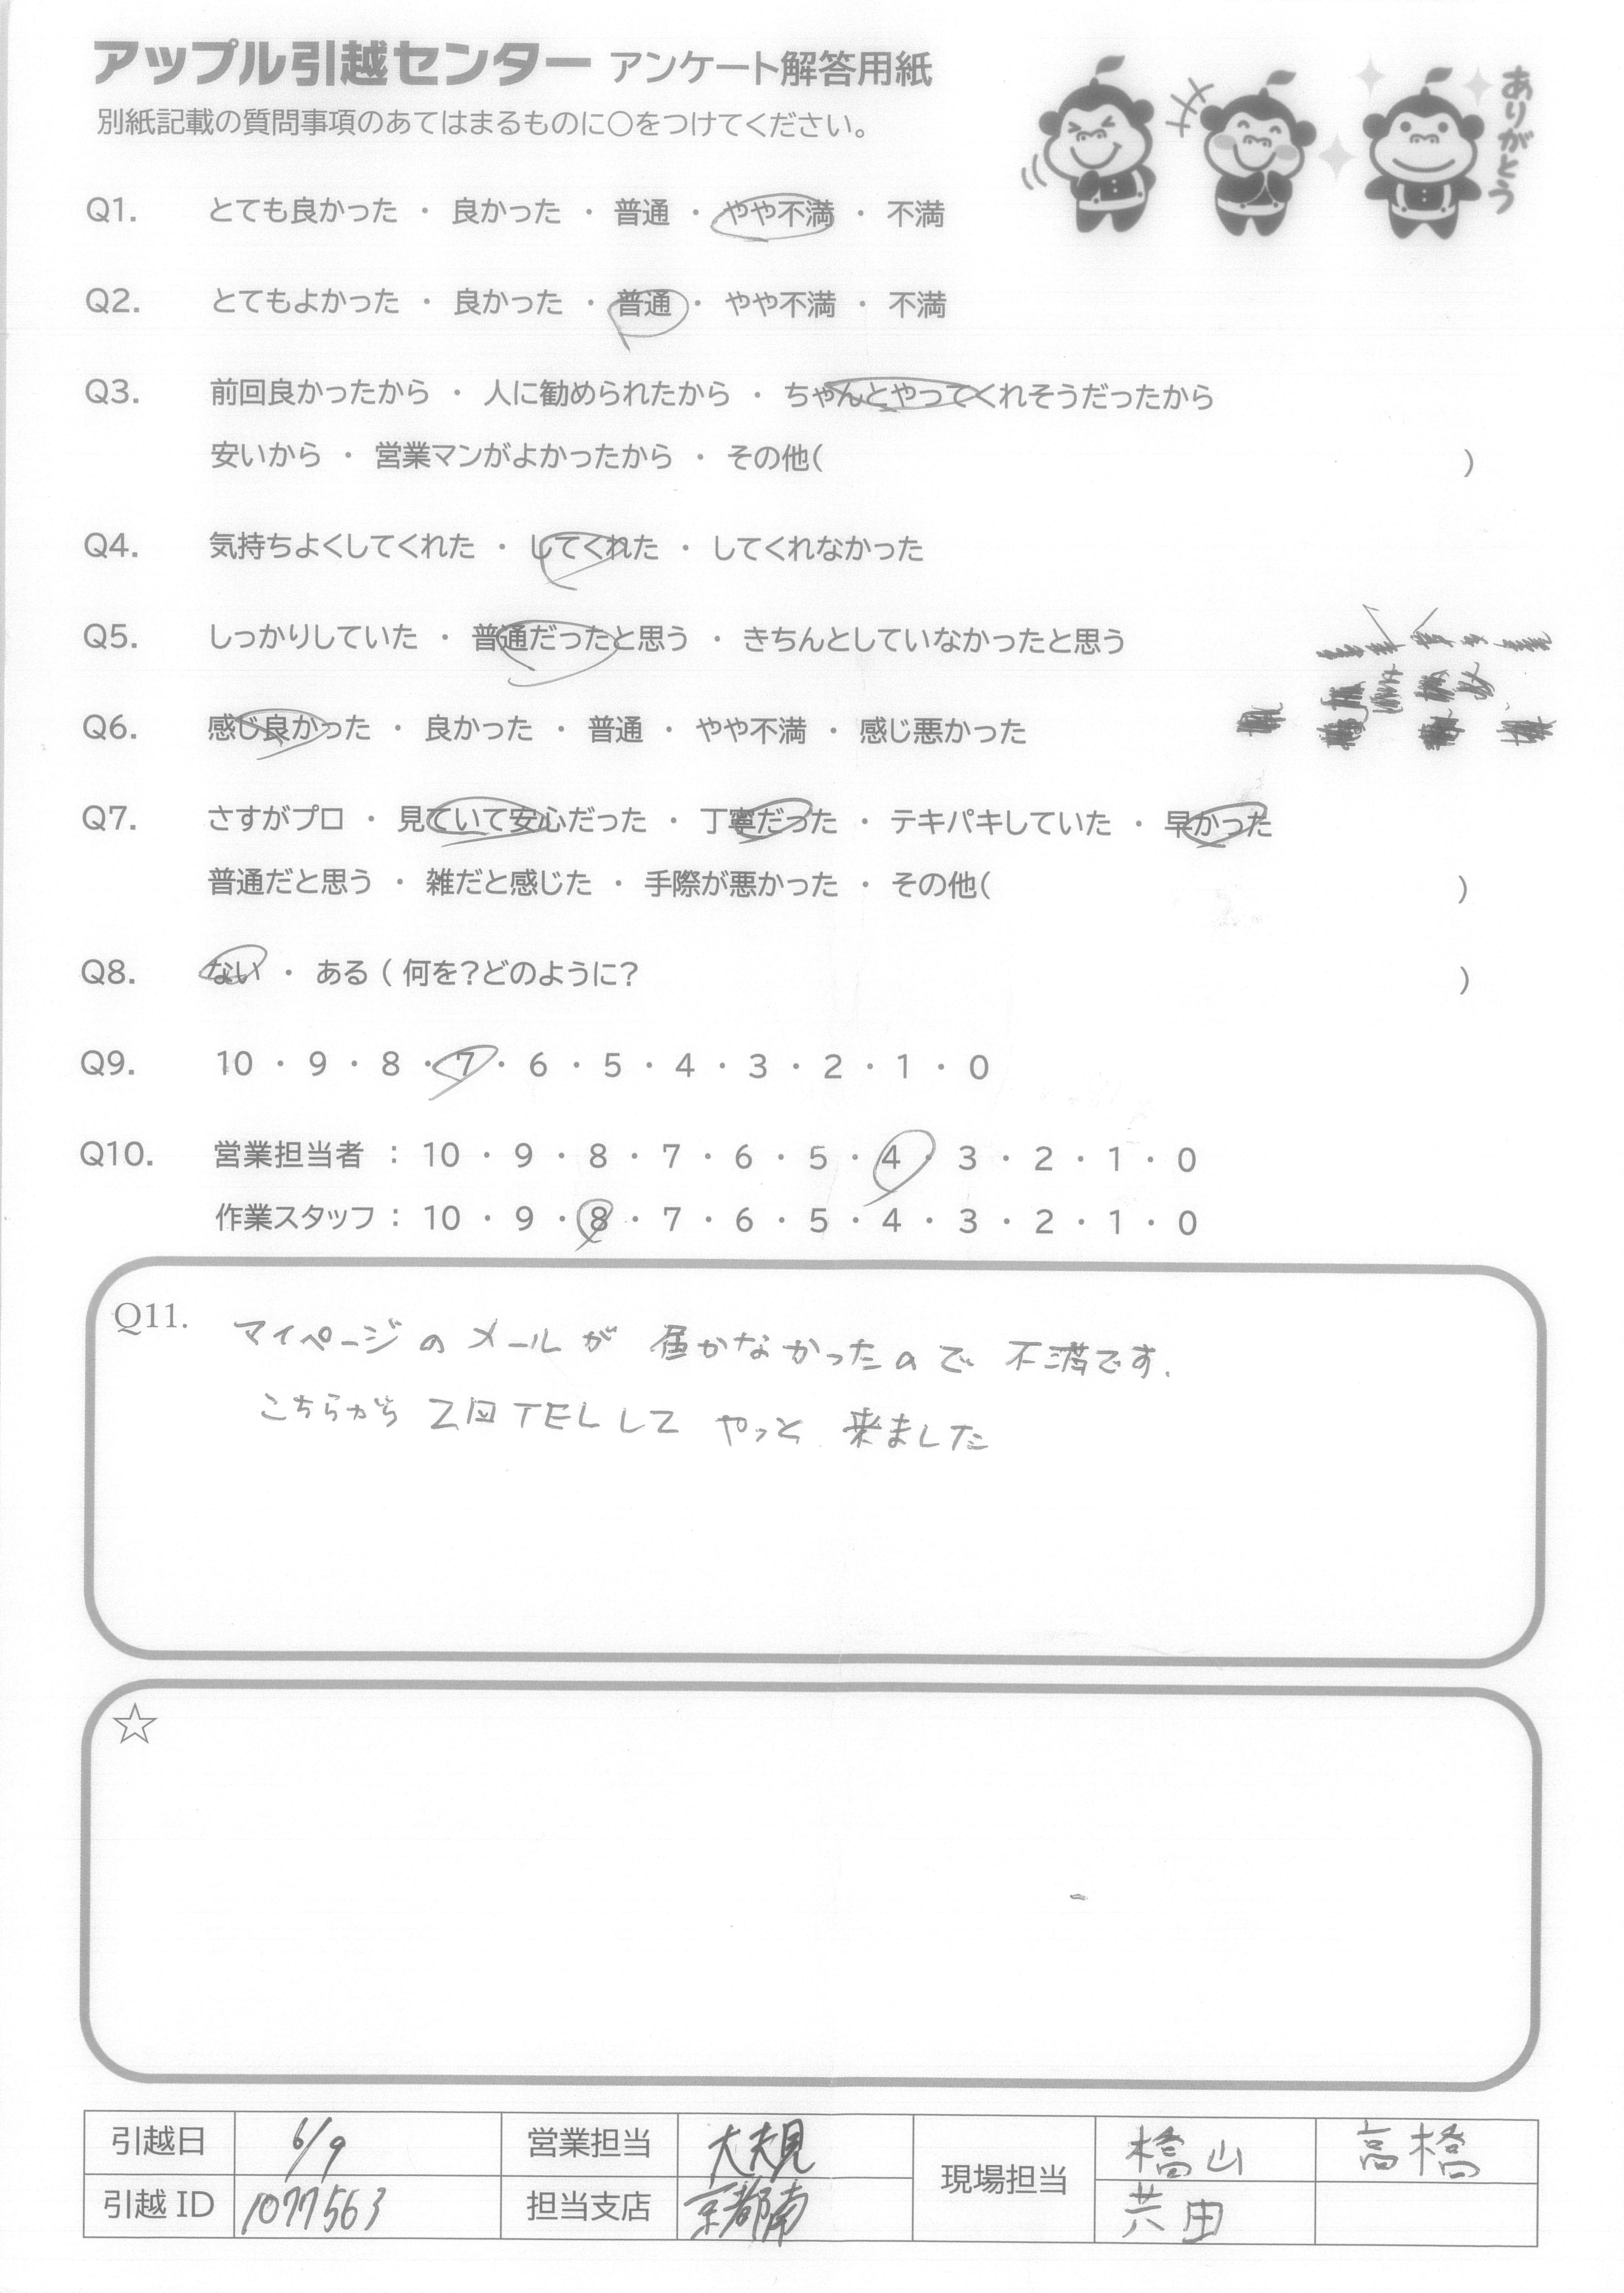 アップル引越センター アンケート解答用紙
別紙記載の質問事項のあてはまるものに○をつけてください。
ありがとう
Q1. とても良かった ・ 良かった ・ 普通 ・ やや不満 ・ 不満
Q2. とてもよかった ・ 良かった ・ 普通 ・ やや不満 ・ 不満
Q3. 前回良かったから ・ 人に勧められたから ・ ちゃんとやってくれそうだったから
安いから ・ 営業マンがよかったから ・ その他( )
Q4. 気持ちよくしてくれた ・ してくれた ・ してくれなかった
Q5. しっかりしていた ・ 普通だったと思う ・ きちんとしていなかったと思う
Q6. 感じ良かった ・ 良かった ・ 普通 ・ やや不満 ・ 感じ悪かった
Q7. さすがプロ ・ 見ていて安心だった ・ 丁寧だった ・ テキパキしていた ・ 早かった
普通だと思う ・ 雑だと感じた ・ 手際が悪かった ・ その他( )
Q8. ない ・ ある ( 何を?どのように? )
Q9. 10 ・ 9 ・ 8 ・ 7 ・ 6 ・ 5 ・ 4 ・ 3 ・ 2 ・ 1 ・ 0
Q10. 営業担当者 : 10 ・ 9 ・ 8 ・ 7 ・ 6 ・ 5 ・ 4 ・ 3 ・ 2 ・ 1 ・ 0
作業スタッフ : 10 ・ 9 ・ 8 ・ 7 ・ 6 ・ 5 ・ 4 ・ 3 ・ 2 ・ 1 ・ 0
Q11. マイページのメールが 届かなかったので 不満です.
こちらから 2回TELして やっと 来ました
☆
引越日 6/9 営業担当 現場担当 橋山 高橋
引越 ID 1077563 担当支店 京都南